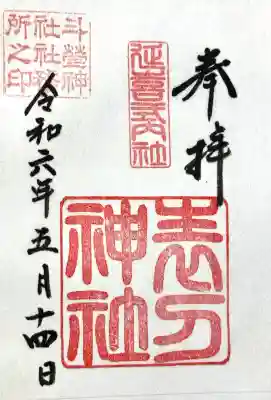 奉拝
延喜式内社
表刀神社
斗瑩神
社社務
所之印
令和六年五月十四日